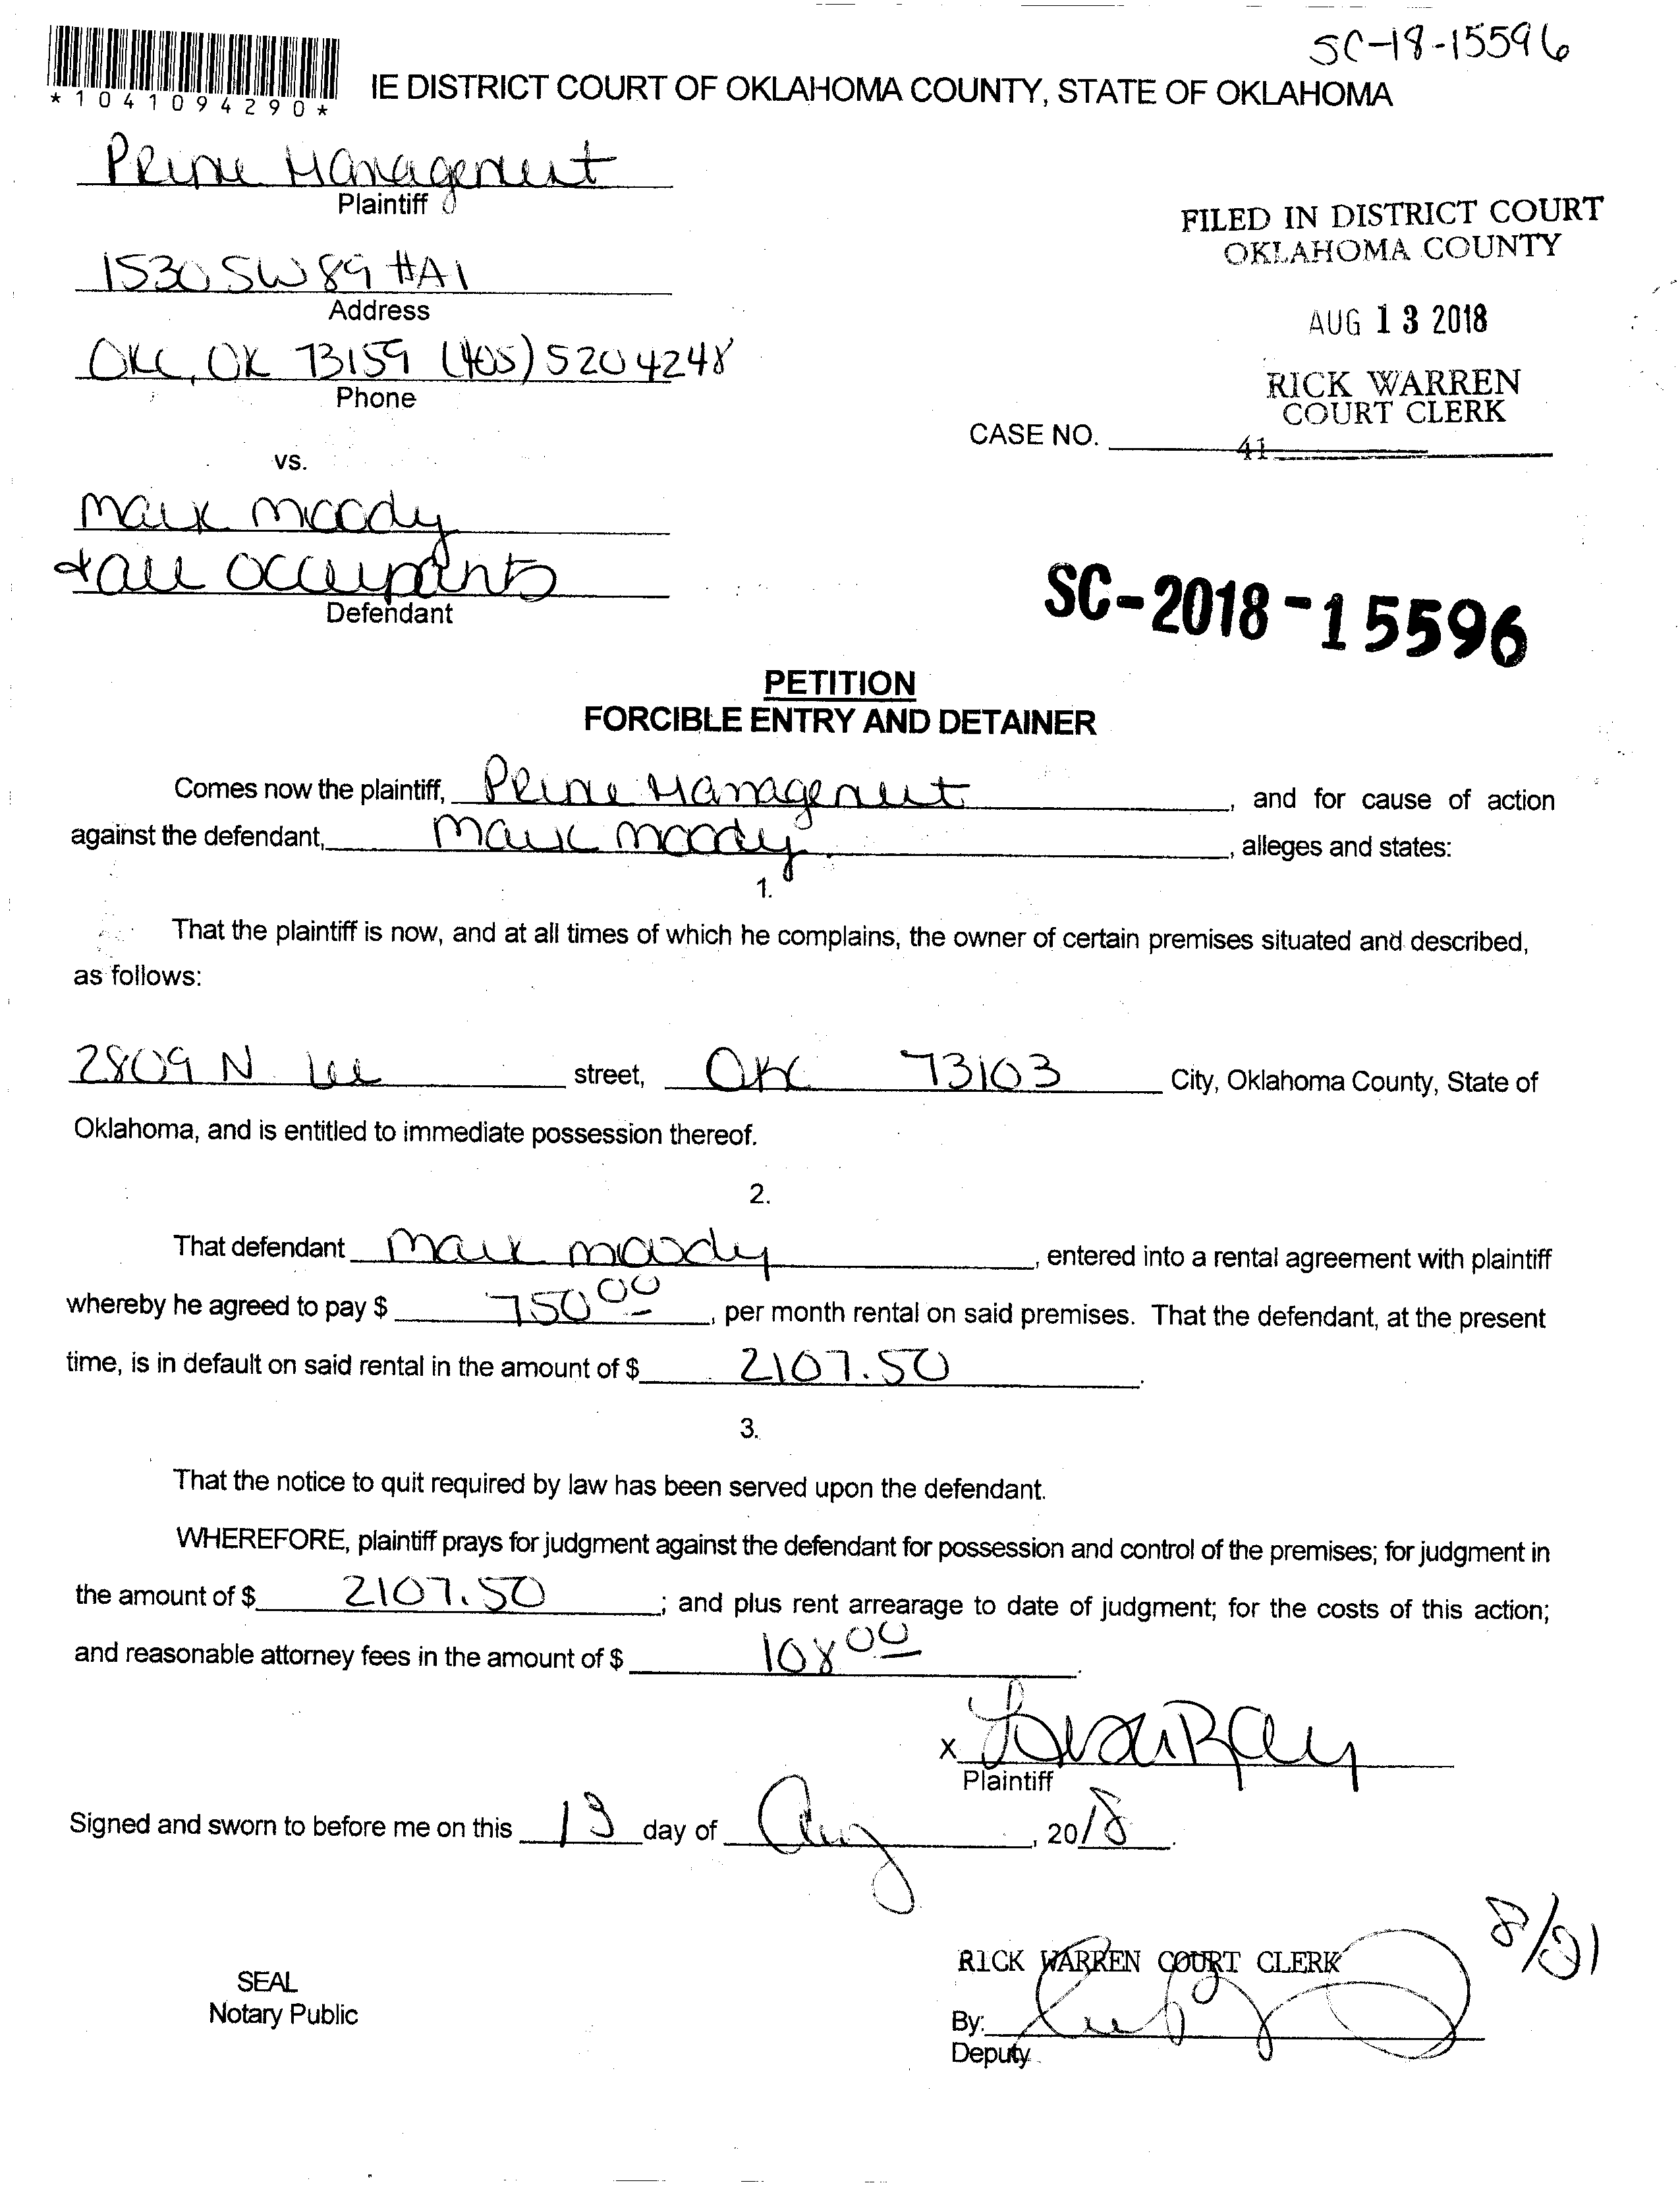 SC-18-15596
*1041094290*
IE DISTRICT COURT OF OKLAHOMA COUNTY, STATE OF OKLAHOMA
Prime Management
Plaintiff
1530 SW 89 #A1
Address
OKC, OK 73159 (405) 520 4248
Phone
FILED IN DISTRICT COURT
OKLAHOMA COUNTY
AUG 13 2018
RICK WARREN
COURT CLERK
CASE NO.
41
vs.
Mark Moody
+ all occupants
Defendant
SC-2018-15596
PETITION
FORCIBLE ENTRY AND DETAINER
Comes now the plaintiff, Prime Management, and for cause of action
against the defendant, Mark Moody, alleges and states:
1.
That the plaintiff is now, and at all times of which he complains, the owner of certain premises situated and described,
as follows:
2809 N Lee street, OKC 73103 City, Oklahoma County, State of
Oklahoma, and is entitled to immediate possession thereof.
2.
That defendant Mark Moody, entered into a rental agreement with plaintiff
whereby he agreed to pay $ 750 00, per month rental on said premises. That the defendant, at the present
time, is in default on said rental in the amount of $ 2107.50.
3.
That the notice to quit required by law has been served upon the defendant.
WHEREFORE, plaintiff prays for judgment against the defendant for possession and control of the premises; for judgment in
the amount of $ 2107.50; and plus rent arrearage to date of judgment; for the costs of this action;
and reasonable attorney fees in the amount of $ 108 00.
X
Plaintiff
Signed and sworn to before me on this 13 day of Aug, 2018.
8/21
RICK WARREN COURT CLERK
SEAL
Notary Public
By:
Deputy